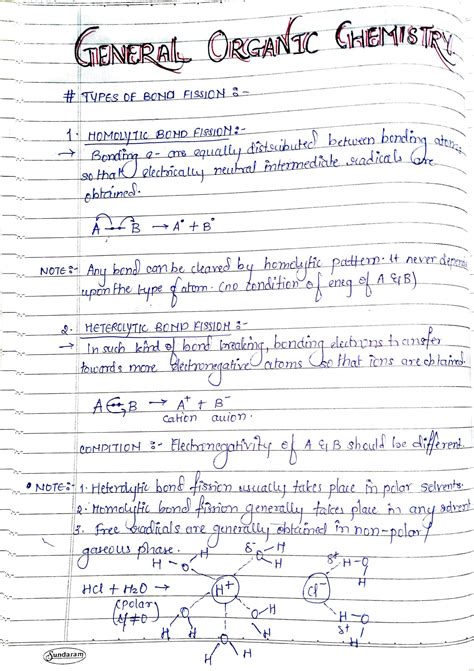 GENERAL ORGANIC CHEMISTRY
# TYPES OF BOND FISSION :-
1. HOMOLYTIC BOND FISSION :-
→ Bonding e- are equally distributed between bonding atoms
so that electrically neutral intermediate radicals are
obtained.
A—B → A• + B•
NOTE :- Any bond can be cleaved by homolytic pattern. it never depends
upon the type of atom. (no condition of eneg of A & B)
2. HETEROLYTIC BOND FISSION :-
→ In such kind of bond breaking, bonding electrons transfer
towards more electronegative atoms so that ions are obtained
A—B → A+ + B-
cation anion.
CONDITION :- Electronegativity of A & B should be different.
• NOTE :- 1. Heterolytic bond fission usually takes place in polar solvents.
2. Homolytic bond fission generally takes place in any solvent.
3. Free radicals are generally obtained in non-polar/
gaseous phase.
HCl + H2O →
(polar)
H O H H O H δ- O H H
H+
H O H O H H O H
δ+ H-O H
Cl-
H-O δ+ H
Sundaram